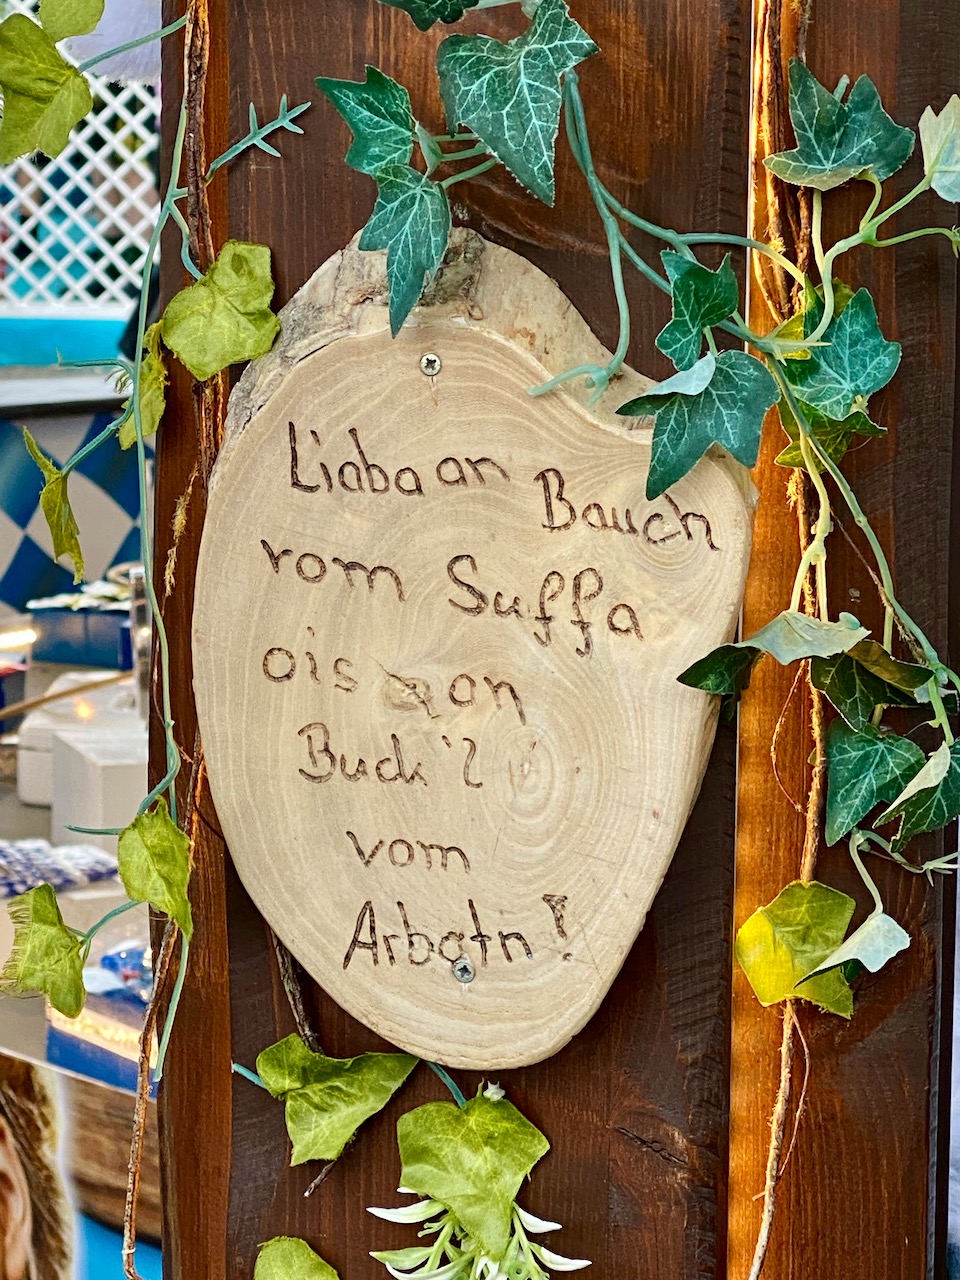 Liaba an Bauch
vom Suffa
ois an
Buck'l
vom
Arbatn!